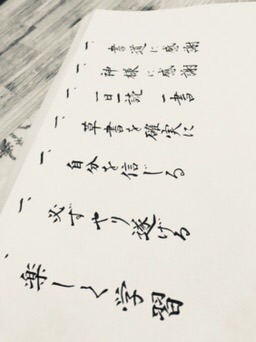 一、書道に感謝
一、神様に感謝
一、一日一読 一書
一、草書を確実に
一、自分を信じろ
一、必ずやり遂げろ
、楽しく学習